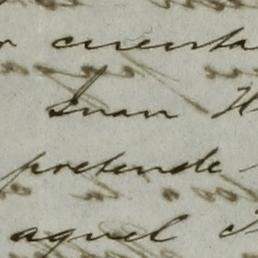 r cuenta
Juan H
pretende
aquel